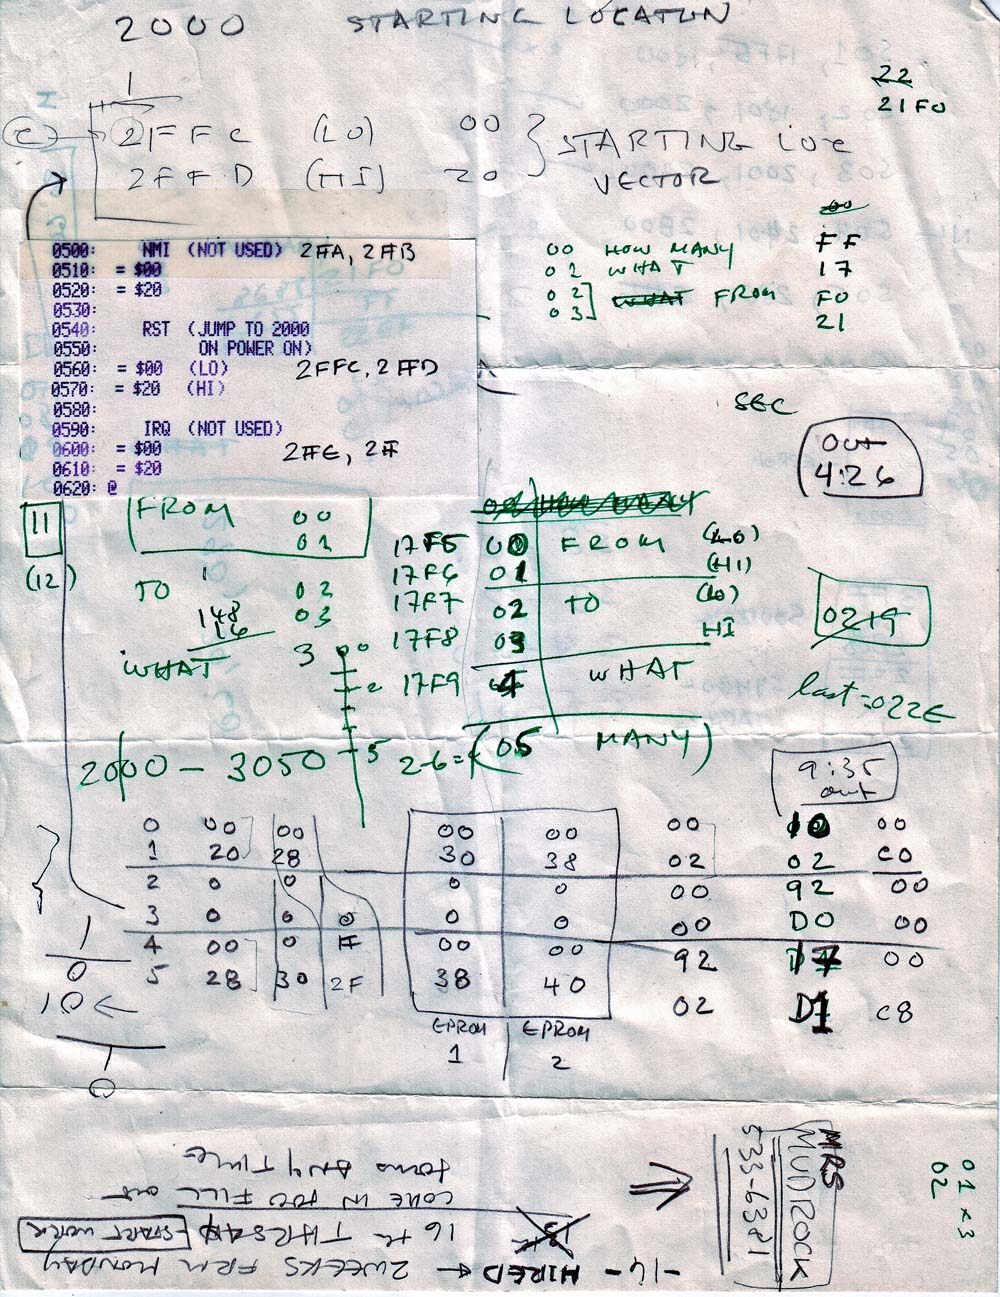 2000 STARTING LOCATION
1
22
21F0
C 21FFC (LO) 00
2FFD (HI) 20
STARTING LOC
VECTOR
00
FF
17
F0
21
00 HOW MANY
01 WHAT
02 WHAT FROM
03
0500: NMI (NOT USED) 2FFA, 2FFB
0510: = $00
0520: = $20
0530:
0540: RST (JUMP TO 2000
0550: ON POWER ON)
0560: = $00 (LO) 2FFC, 2FFD
0570: = $20 (HI)
0580:
0590: IRQ (NOT USED)
0600: = $00 2FFE, 2FF
0610: = $20
0620: @
SEC
OUT
4:26
11
(12)
FROM 00
01
TO 02
03
148
16
WHAT 3
00 HOW MANY
17F5 00 FROM (LO)
17F6 01 (HI)
17F7 02 TO (LO)
17F8 03 HI
17F9 4 WHAT
2-6= (05 MANY)
0219
last=022E
2000 - 3050
00
2
5
9:35
out
0 00 00 00 00 00 10 00
1 20 28 30 38 02 02 C0
2 0 0 0 0 00 92 00
3 0 0 0 0 0 00 D0 00
4 00 0 FF 00 00 92 17 00
5 28 30 2F 38 40 02 D1 C8
EPROM EPROM
1 2
1
0
10
1
0
-14- HIRED → 2 WEEKS FRM MONDAY
16 th THRSDAY START WORK
COME IN TOO FILL OUT
FORMS ANY TIME
MRS
MUDROCK
533-6381
01 x 3
02